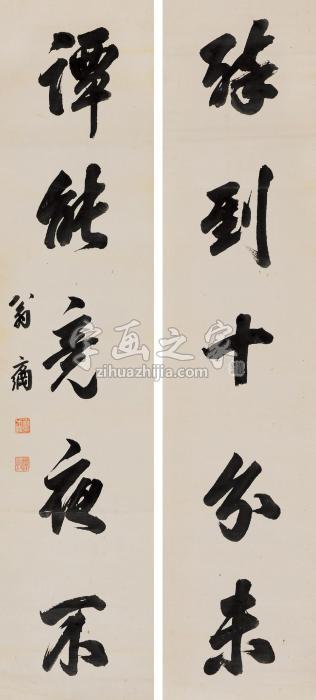 醉到十分未
譚能竟夜不
翁
字画之家
zihuazhijia.com